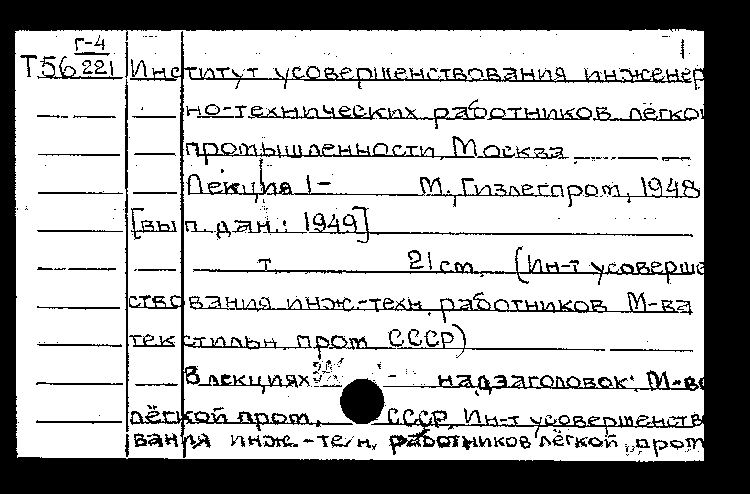 Г-4 1
Т56 221 Институт усовершенствования инженер
но-технических работников лёгкой
промышленности, Москва.
Лекция 1- М., Гизлегпром, 1948
[вып. дан.: 1949]
т. 21 см. (Ин-т усоверше
ствования инж.-техн. работников М-ва
текстильн. пром. СССР)
В лекциях - надзаголовок: М-во
лёгкой пром. СССР. Ин-т усовершенство
вания инж.-техн. работников лёгкой пром